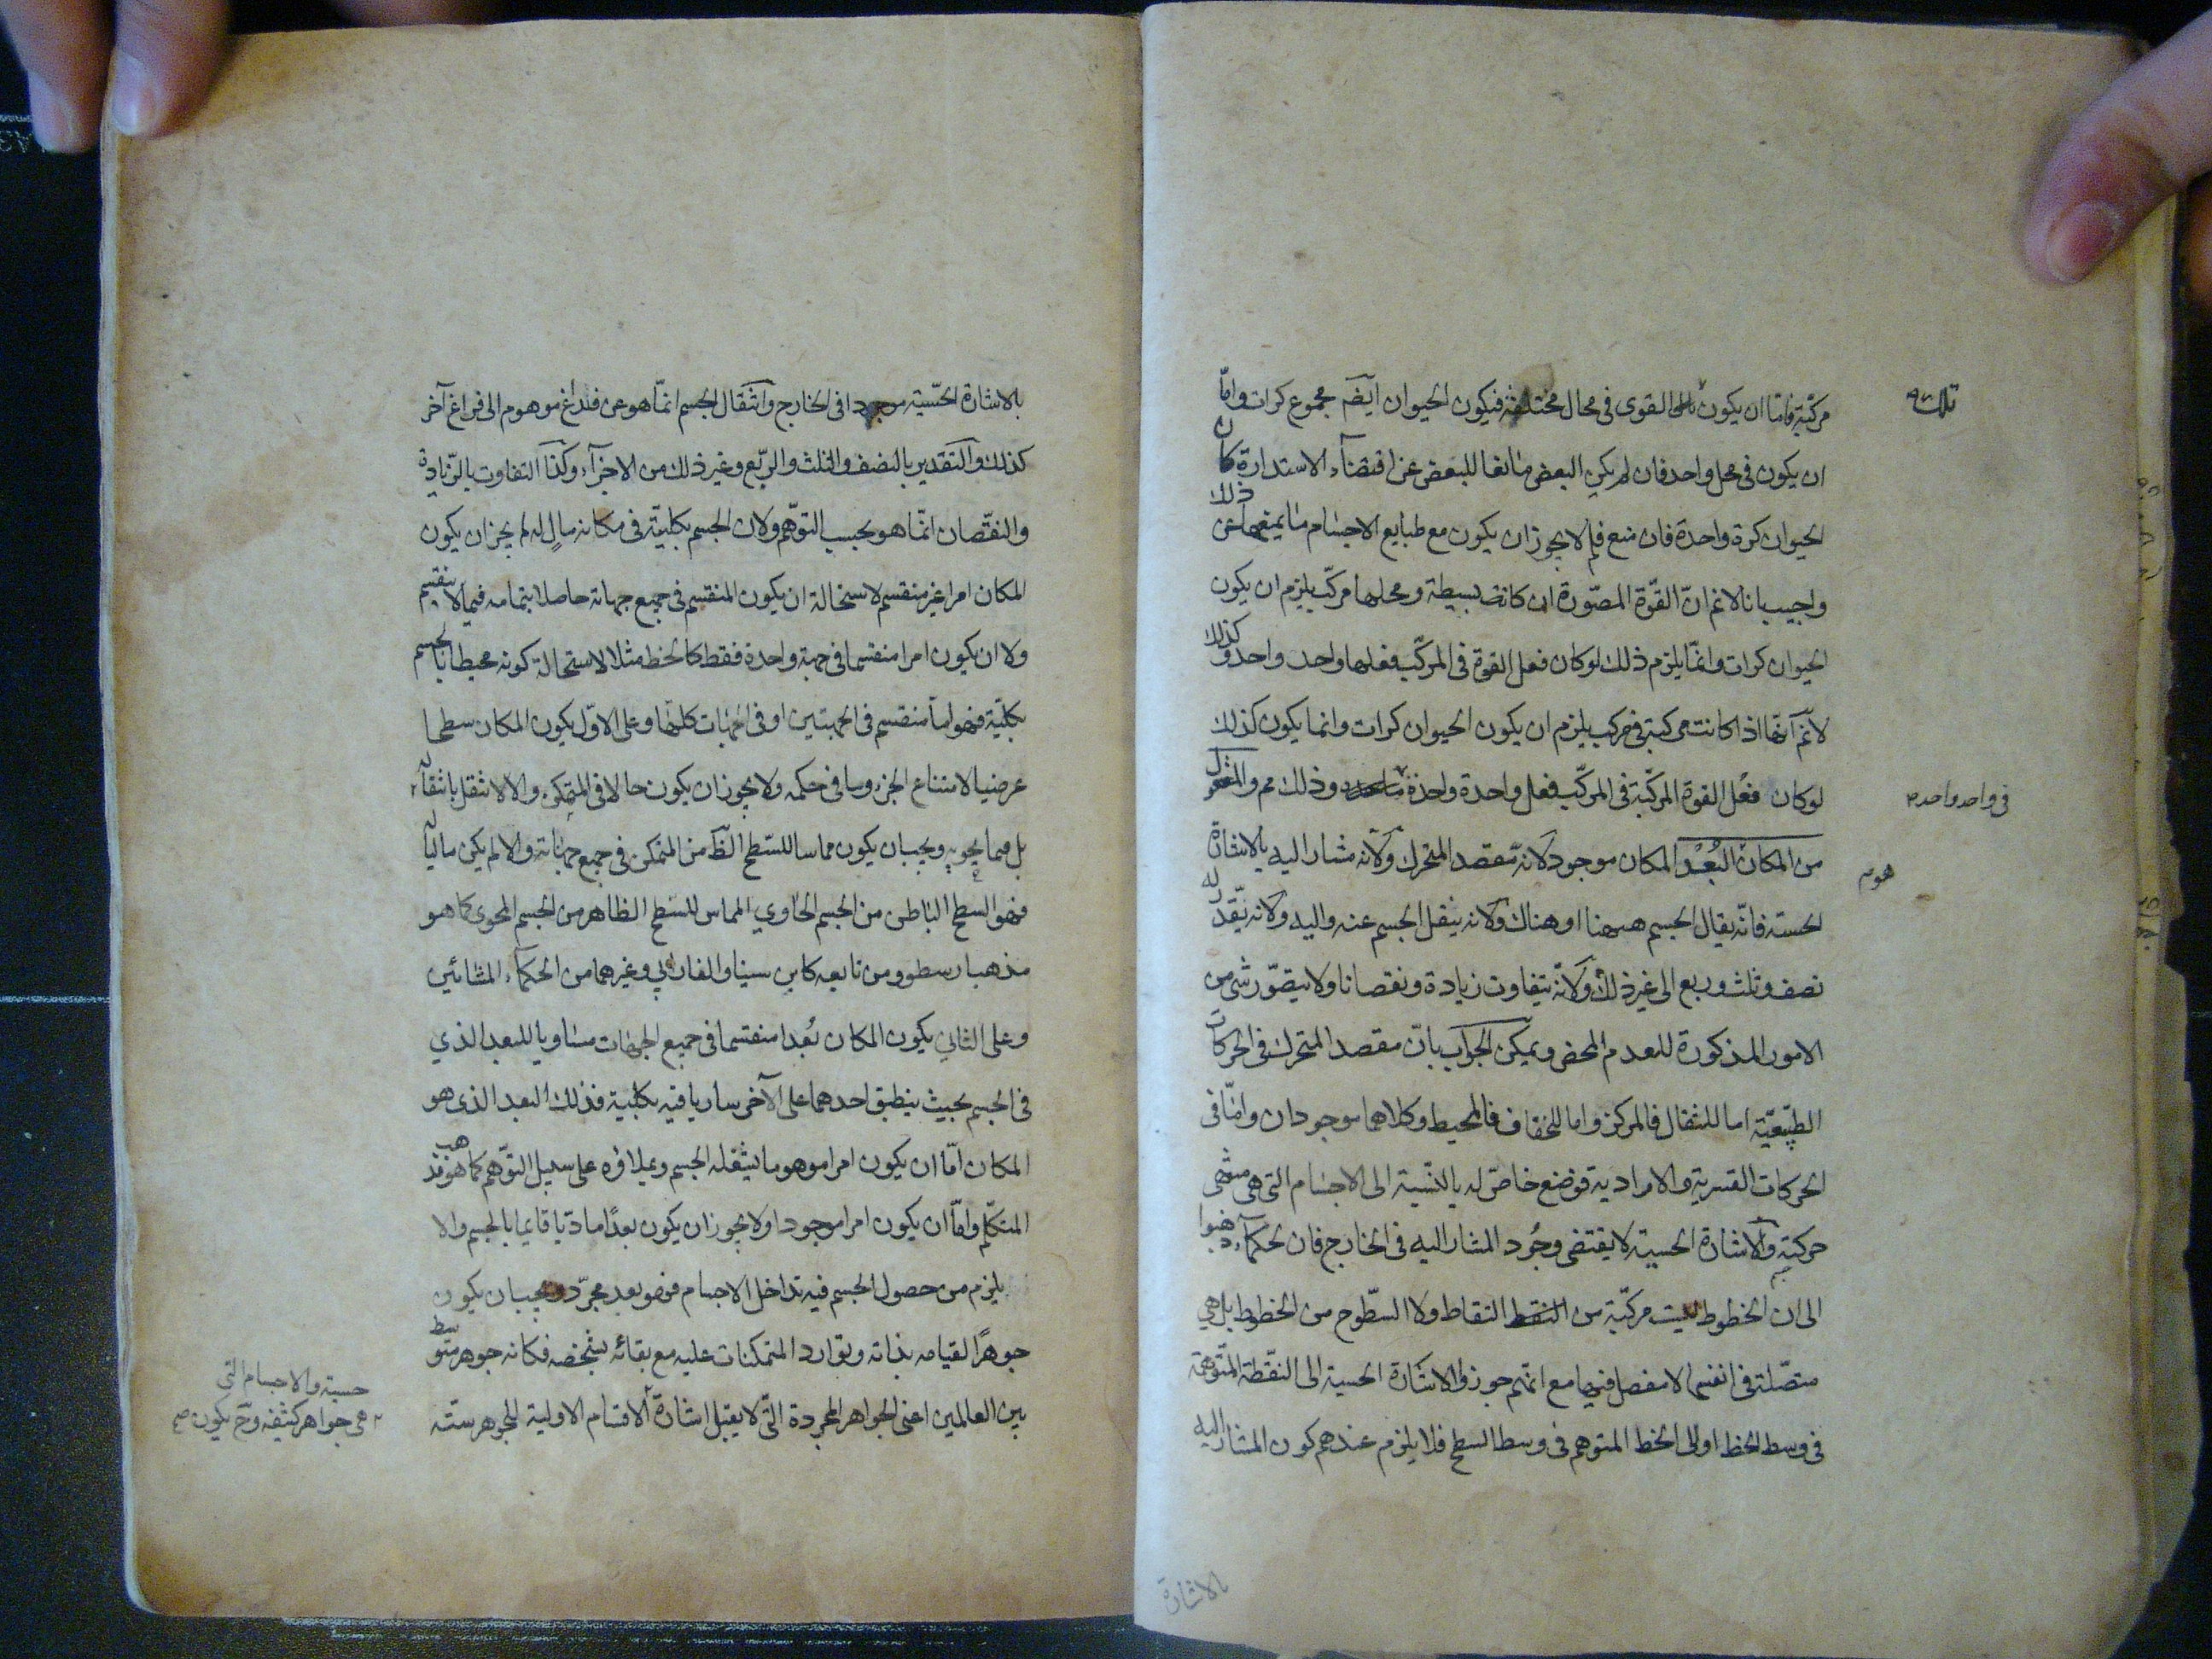 مركبة فاما ان يكون تلك القوى فى محال مختلفة فيكون الحيوان ايضم مجموع كرات واما
تلك
ان يكون فى محل واحد فان لم يكن البعض مانعا للبعض عن اقتضاء الاستدارة كان
الحيوان كرة واحدة فان منع فلم لا يجوز ان يكون مع طبايع الاجسام ما يمنعها عن ذلك
واجيب بانا لانم ان القوة المصورة ان كانت بسيطة ومحلها مركب يلزم ان يكون
الحيوان كرات وانما يلزم ذلك لو كان فعل القوة فى المركب فعلها واحد واحد وكذلك
لانم انها اذا كانت مركبة فى مركب يلزم ان يكون الحيوان كرات وانما يكون كذلك
لو كان فعل القوة المركبة فى المركب فعل واحدة واحدة وذلك مم والمقول
فى واحد واحد
من المكان البعد المكان موجود لانه مقصد المتحرك ولانه مشار اليه بالاشارة
هو
الحسية فانه يقال الجسم ههنا او هناك ولانه ينتقل الجسم عنه واليه ولانه يقدر له
نصف وثلث وربع الى غير ذلك ولانه يتفاوت زيادة ونقصانا ولا يتصور شئ من
الامور المذكورة للعدم المحض ويمكن الجواب بان مقصد المتحرك فى الحركات
الطبيعية اما للثقال فالمركز واما للخفاف فالمحيط وكلاهما موجودان واما فى
الحركات القسرية والارادية فوضع خاص له بالنسبة الى الاجسام التى هى منتهى
حركته والاشارة الحسية لا يقتضى وجود المشار اليه فى الخارج فان الحكماء ذهبوا
الى ان الخطوط ليست مركبة من النقط النقاط ولا السطوح من الخطوط بل هي
متصلة فى انفسها لا مفصل فيها مع انهم جوزوا الاشارة الحسية الى النقطة المتوهمة
فى وسط الخط او الى الخط المتوهم فى وسط السطح فلا يلزم عندهم كون المشار اليه
بالاشارة
بالاشارة الحسية موجودا فى الخارج وانتقال الجسم انما هو عن فراغ موهوم الى فراغ آخر
كذلك والتقدير بالنصف والثلث والربع وغير ذلك من الاجزاء وكذا التفاوت بالزيادة
والنقصان انما هو بحسب التوهم ولان الجسم بكليته فى مكانه مالٍ له لم يجز ان يكون
المكان امرا غير منقسم لاستحالة ان يكون المنقسم فى جميع جهاته حاصلا بتمامه فيما لا ينقسم
ولا ان يكون امرا منقسما فى جهة واحدة فقط كالخط مثلا لاستحالة كونه محيطا بالجسم
بكليته فهو اما منقسم فى الجهتين او فى الجهات كلها وعلى الاول يكون المكان سطحا
عرضيا لامتناع الجزء وما فى حكمه ولا يجوز ان يكون حالا فى المتمكن والا لانتقل بانتقاله
بل فيما يحويه ويجب ان يكون مماسا للسطح الظ من المتمكن فى جميع جهاته والا لم يكن ماليا له
فهو السطح الباطن من الجسم الحاوي المماس للسطح الظاهر من الجسم المحوى كما هو
مذهب ارسطو ومن تابعه كابن سينا والفارابي وغيرهما من الحكماء المشائين
وعلى الثاني يكون المكان بُعدا منقسما فى جميع الجهات مساويا للبعد الذي
فى الجسم بحيث ينطبق احدهما على الآخر ساريا فيه بكليته فذلك البعد الذى هو
المكان اما ان يكون امرا موهوما يشغله الجسم ويملاؤه على سبيل التوهم كما هو مذهب
المتكلم واما ان يكون امرا موجودا ولا يجوز ان يكون بعدًا ماديا قايما بالجسم والا
يلزم من حصول الجسم فيه تداخل الاجسام فهو بعد مجرد ويجب ان يكون
جوهرًا لقيامه بذاته وتوارد المتمكنات عليه مع بقائه بشخصه فكانه جوهر متوسط
بين العالمين اعنى الجواهر المجردة التى لا يقبل اشارة الاقسام الاولية للجوهر ستة
حسية والاجسام التى
هى جواهر كثيفة وح يكون صح